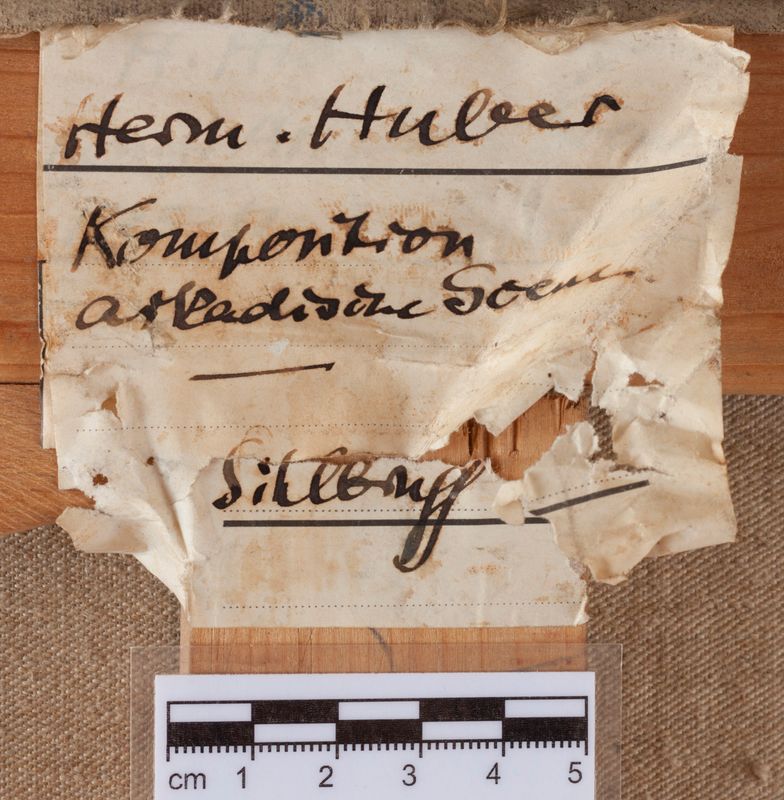 Herm. Huber
Komposition
arkadische Scene
Sihlbrugg
cm 1 2 3 4 5